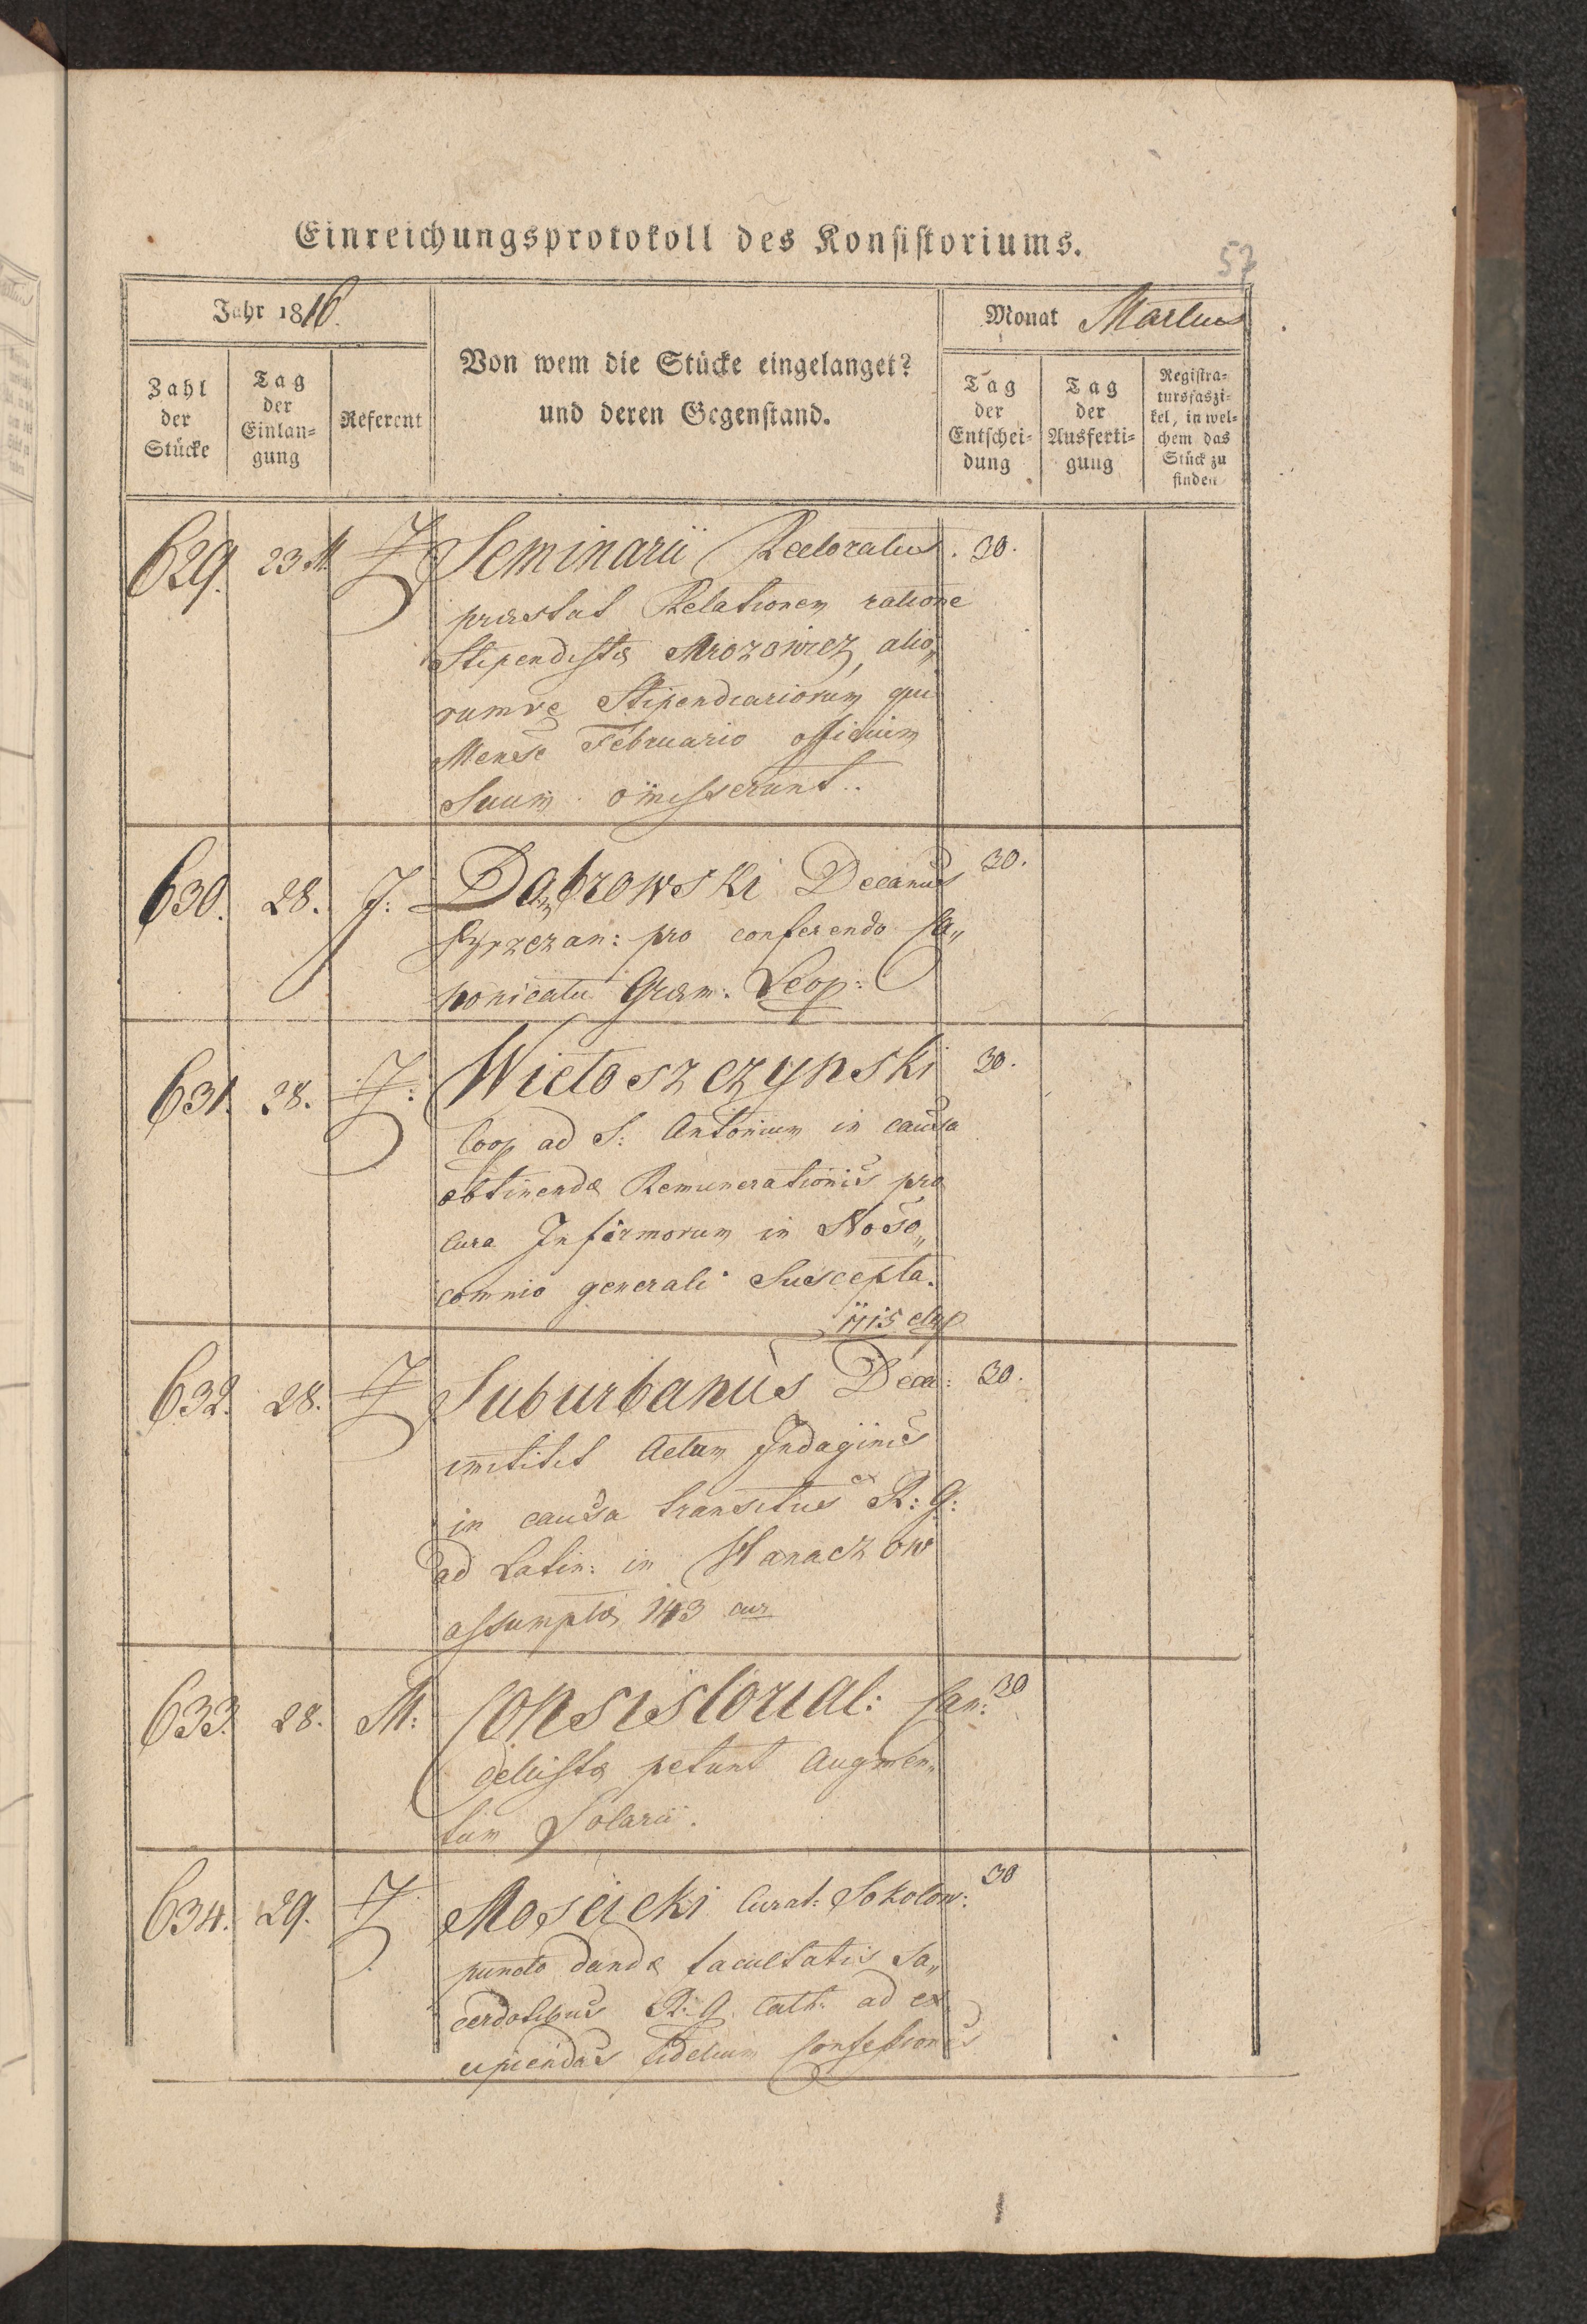 Einreichungsprotokoll des Konsistoriums.
57
Jahr 1816.
Monat Martius
Zahl der Stücke
Tag der Einlan= gung
Referent
Von wem die Stücke eingelanget?
und deren Gegenstand.
Tag der Entschei= dung
Tag der Ausferti= gung
Registra= tursfaszi= kel, in wel= chem das Stück zu finden
629. 23 M. Seminarii Rectoratus. 30.
præstat Relationem ratione
Stipendistæ Mrozowicz, alio„
rumve Stipendiariorum qui
Mense Februario officium
Suum omisserunt..
630. 28. J: Dąbrowski Decanus 30.
pro conferendo Ca„
nonicatu Græm: Leop:
631. 28. Wietoszczynski 30.
Coop ad S: Antonium in causa
obtinendæ Remunerationis pro
Cura Infirmorum in Noso„
comnio generali Suscepta.
632. 28. Suburbanus Deca: 30.
mittit Actum Indaginis
in causa transitus ex R: G:
ad Latin: in Hanaczow
assumptæ 143 cur
633. 28. M: Consistorial: Can: 30
cellistæ petunt Augmen„
tum Solarii.
634. 29. Mościcki Curat: Sokolow: 30
puncto dandæ facultatis Sa„
cerdotibus R: G. Cath: ad ex
cipiendas fidelium Confessiones